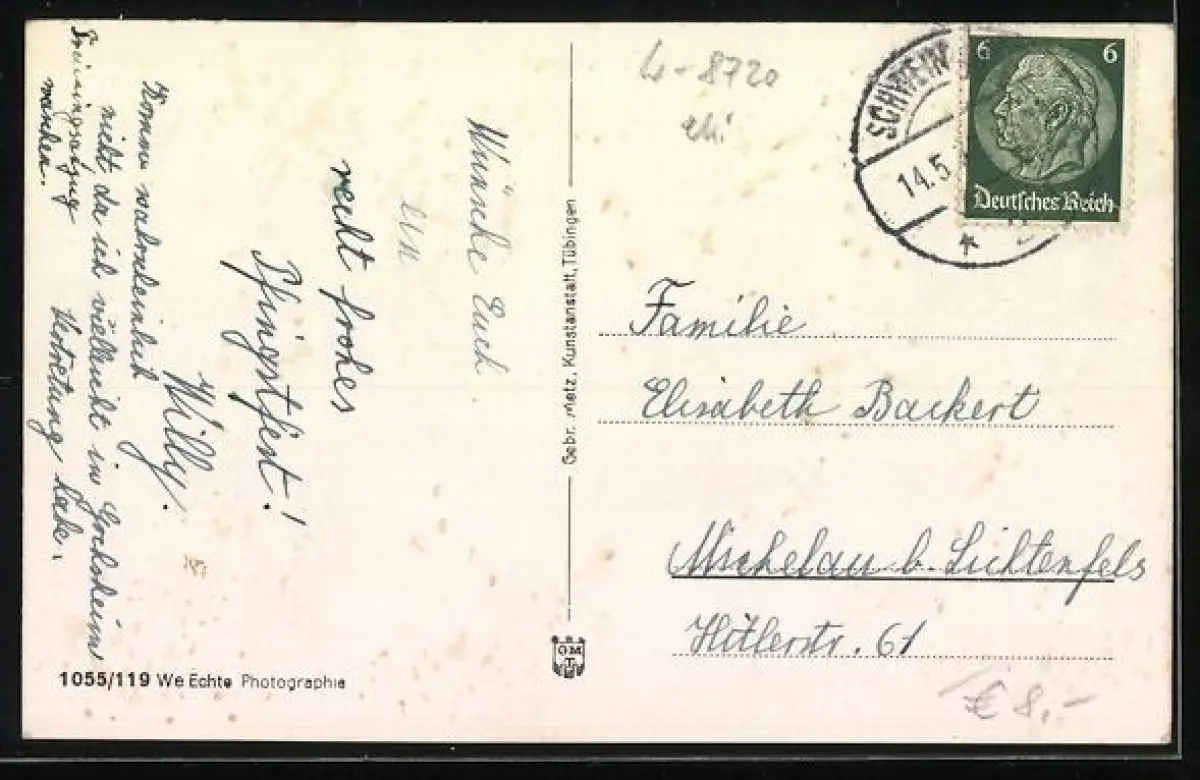 Wünsche Euch
ein
recht frohes
Pfingstfest!
Willy.
Komme wahrscheinlich
nicht da ich vielleicht in Gochsheim
Vertretung habe.
wandern.
4-8720
Gebr. Metz, Kunstanstalt, Tübingen
SCHWEIN
14.5
6 6
Deutsches Reich
Familie
Elisabeth Backert
Michelau b. Lichtenfels
Hitlerstr. 61
GMT
1055/119 We Echte Photographie
€ 8,-